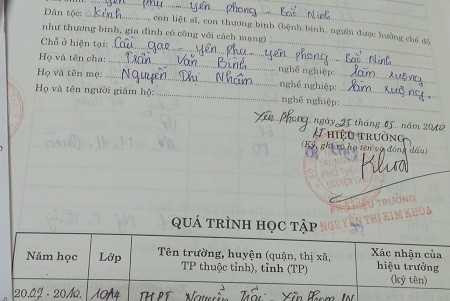 yên phụ - yên phong - Bắc Ninh
Dân tộc: kinh, con liệt sĩ, con thương binh (bệnh binh, người được hưởng chế độ
như thương binh, gia đình có công với cách mạng)
Chỗ ở hiện tại: Cầu gạo - yên phụ - yên phong - Bắc Ninh
Họ và tên cha: Trần Văn Bình nghề nghiệp: làm ruộng
Họ và tên mẹ: Nguyễn Thị Nhâm nghề nghiệp: làm ruộng.
Họ và tên người giám hộ: nghề nghiệp:
Yên Phong, ngày 25 tháng 05 năm 2010
HIỆU TRƯỞNG
(Ký, ghi rõ họ tên và đóng dấu)
Khoa
PHÓ HIỆU TRƯỞNG
NGUYỄN THỊ KIM KHOA
QUÁ TRÌNH HỌC TẬP
Năm học Lớp Tên trường, huyện (quận, thị xã, TP thuộc tỉnh), tỉnh (TP) Xác nhận của hiệu trưởng (ký tên)
2009 - 2010. 10A4 THPT Nguyễn Trãi - Yên Phong